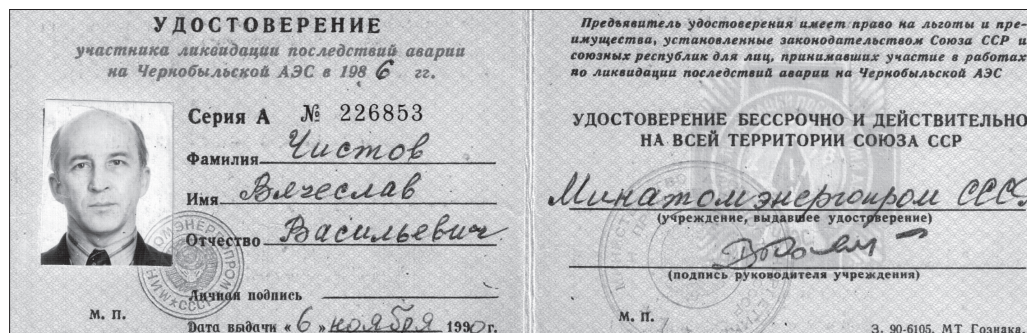 УДОСТОВЕРЕНИЕ
участника ликвидации последствий аварии
на Чернобыльской АЭС в 198 6 гг.
Серия А № 226853
Фамилия Чистов
Имя Вячеслав
Отчество Васильевич
МИНАТОМЭНЕРГОПРОМ СССР
Личная подпись
М. П.
Дата выдачи « 6 » ноября 1990г.
Предъявитель удостоверения имеет право на льготы и пре-
имущества, установленные законодательством Союза ССР и
союзных республик для лиц, принимавших участие в работах
по ликвидации последствий аварии на Чернобыльской АЭС
УДОСТОВЕРЕНИЕ БЕССРОЧНО И ДЕЙСТВИТЕЛЬНО
НА ВСЕЙ ТЕРРИТОРИИ СОЮЗА ССР
Минатомэнергопром СССР
(учреждение, выдавшее удостоверение)
(подпись руководителя учреждения)
М. П.
З. 90-6105. МТ Гознака.